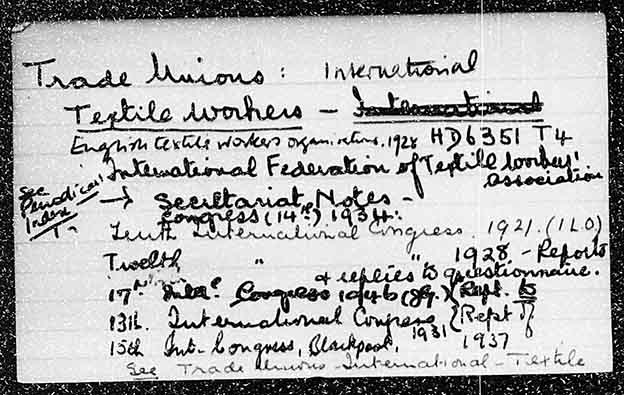 Trade Unions: International
Textile Workers - International
English textile workers organisations. 1928 HD6351 T4
International Federation of Textile Workers' Association
See Periodical Index
→ Secretariat Notes -
Congress (14th) 1934.
Tenth International Congress. 1921. (ILO)
Twelfth " " 1928 - Reports
& replies to questionnaire.
17th Intl. Congress 1946 Rept. to
13th. International Congress 1931 Rept of
15th Int. Congress, Blackpool, 1937
See Trade Unions - International - Textile